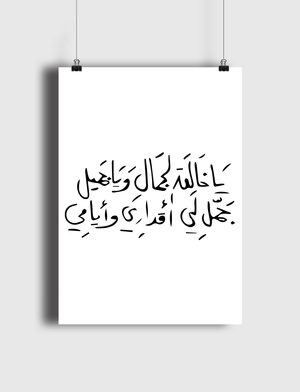 يَا خَالِقَ لجَمَال وَيَا جَميل
جَمِّل لِي أقدارِي وأيامِي